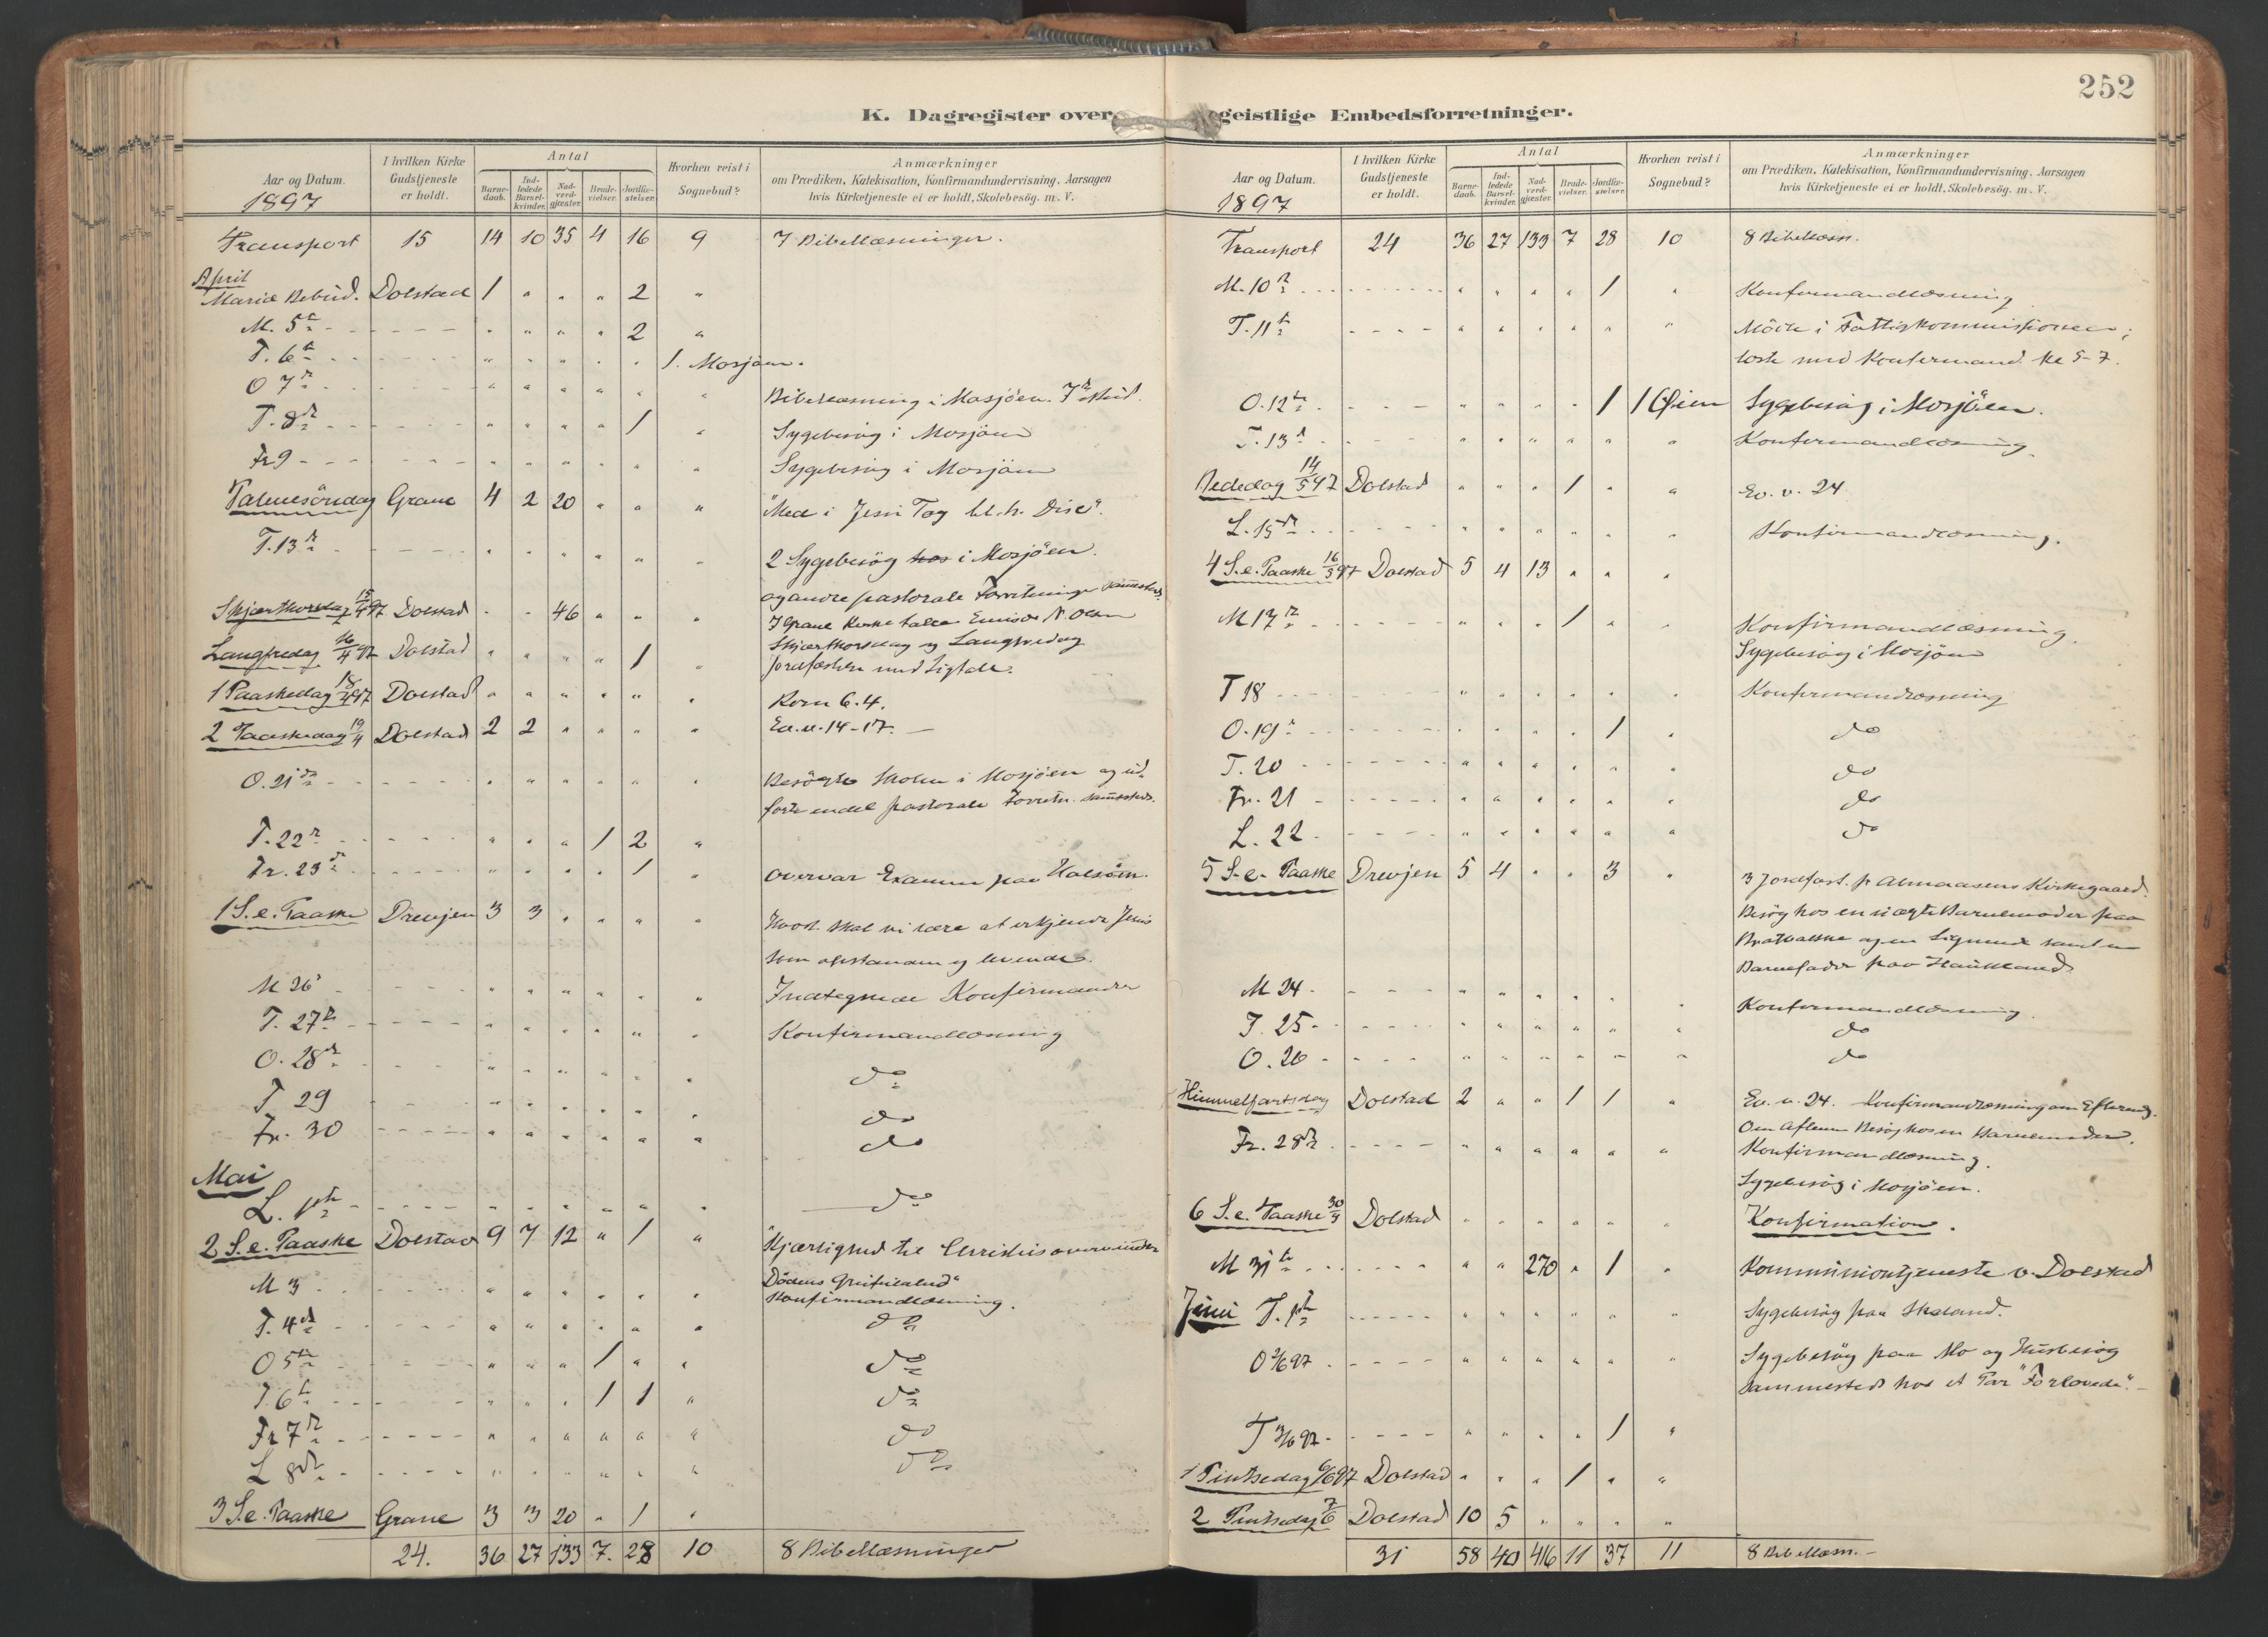 252
K. Dagregister over
Aar og Datum. I hvilken Kirke Gudstjeneste er holdt. Antal Barnedaab. Indledede Barselkvinder. Nadverdgjæster. Brudevielser. Jordfæstelser. Hvorhen reist i Sognebud? Anmærkninger om Prædiken, Katekisation, Konfirmandundervisning, Aarsagen hvis Kirketjeneste ei er holdt, Skolebesög. m. V.
1897
Transport 15 14 10 35 4 16 9 7 Bibellæsninger.
April
Mariæ Bebud. Dolstad 1 " " " 2 "
M. 5te " " " " 2 "
T. 6te " " " " " 1. Mosjøen.
O 7de " " " " " " Bibellæsning i Mosjøen.
T. 8de " " " " 1 " Sygebesøg i Mosjøen
Fr 9 " " " " " " Sygebesøg i Mosjøen
Palmesöndag Grane 4 2 20 " " " "Med i Jesu Tog
T. 13de " " " " " " 2 Sygebesøg hos i Mosjöen.
og andre pastorale Forretninger sammesteds.
Skjærthorsdag 15/4 97 Dolstad " " 46 " " " I Grane Kirke talte Emissær N. Olsen
Skjærthorsdag og Langfredag
Langfredag 16/4 97 Dolstad " " " " 1 " Jordfæstelse med Ligtale.
1 Paaskedag 18/4 97 Dolstad " " " " " " Rom 6.4.
2 Paaskedag 19/4 Dolstad 2 2 " " " " Ev. v. 14-17.
O. 21de " " " " " " Besögte Skolen i Mosjöen og ud-
førte endel pastorale Forretn. sammesteds.
T. 22de " " " 1 2 "
Fr. 23de " " " " 1 " Overvar Examen paa Halsöen.
1 S. e. Paaske Drevjen 3 3 " " " " Hvad skal vi lære at erkjende Jesus
som opstanden og levende.
M 26 " " " " " " Indtegnede Konfirmander
T. 27de " " " " " " Konfirmandlæsning
O. 28de " " " " " " do
T 29 " " " " " " do
Fr. 30 " " " " " " do
Mai
L. 1ste " " " " " " do
2 S. e. Paaske Dolstad 9 7 12 " 1 " "Kjærlighed til Christus overvinder
Dödens
M 3 " " " " " " Konfirmandlæsning.
T. 4de " " " " " " do
O 5te " " " 1 " " do
T. 6te " " " 1 1 " do
Fr 7de " " " " " " do
L 8de " " " " " " do
3 S. e. Paaske Grane 3 3 20 " 1 "
24. 36 27 133 7. 28 10 8 Bibellæsninger
geistlige Embedsforretninger.
Aar og Datum. I hvilken Kirke Gudstjeneste er holdt. Antal Barnedaab. Indledede Barselkvinder. Nadverdgjæster. Brudevielser. Jordfæstelser. Hvorhen reist i Sognebud? Anmærkninger om Prædiken, Katekisation, Konfirmandundervisning, Aarsagen hvis Kirketjeneste ei er holdt, Skolebesög. m. V.
1897
Transport 24 36 27 133 7 28 10 8 Bibellæsn.
M. 10de " " " " 1 " Konfirmandlæsning
T. 11te " " " " " " Möde i Fattigkommissionen;
læste med Konfirmand. kl 5-7.
O. 12te " " " " 1 1 Øien Sygebesøg i Mosjöen.
T. 13de " " " " " " Konfirmandlæsning
Bededag 14/5 97 Dolstad " " " 1 " " Ev. v. 24
L. 15de " " " " " " Konfirmandlæsning.
4 S. e. Paaske 16/5 97 Dolstad 5 4 13 " " "
M 17de " " " 1 " " Konfirmandlæsning.
Sygebesøg i Mosjøen
T 18 " " " " " " Konfirmandlæsning
O. 19de " " " " 1 " do
T. 20 " " " " " " do
Fr. 21 " " " " " " do
L. 22 " " " " " " do
5 S. e. Paaske Drevjen 5 4 " " 3 " 3 Jordfæst. p. Almaasens Kirkegaard.
Besög hos en uægte Barnemoder paa
og en Lignende samt en
Barnefader paa Haukland
M 24 " " " " " " Konfirmandlæsning.
T. 25 " " " " " " do
O. 26 " " " " " " do
Himmelfartsdag Dolstad 2 " " 1 1 " Ev. v. 24. Konfirmandlæsning om Efterm.
Om Aftenen Besög hos en Barnemoder.
Fr. 28de " " " " " " Konfirmandlæsning.
Sygebesög i Mosjöen.
6 S. e. Paaske 30/5 Dolstad " " " " " " Konfirmation.
M 31te " " 270 " 1 " Kommuniontjeneste v. Dolstad
Juni T. 1ste " " " " " " Sygebesøg paa Skaland.
O 2/6 97 " " " " " " Sygebesög paa Mo og Husbesög
sammesteds hos et Par "Forlovede".
T 3/6 97 " " " " 1 "
1 Pintsedag 6/6 97 Dolstad " " " 1 " "
2 Pintsedag 7/6 Dolstad 10 5 " " " "
31 58 40 416 11 37 11 8 Bibellæsn.